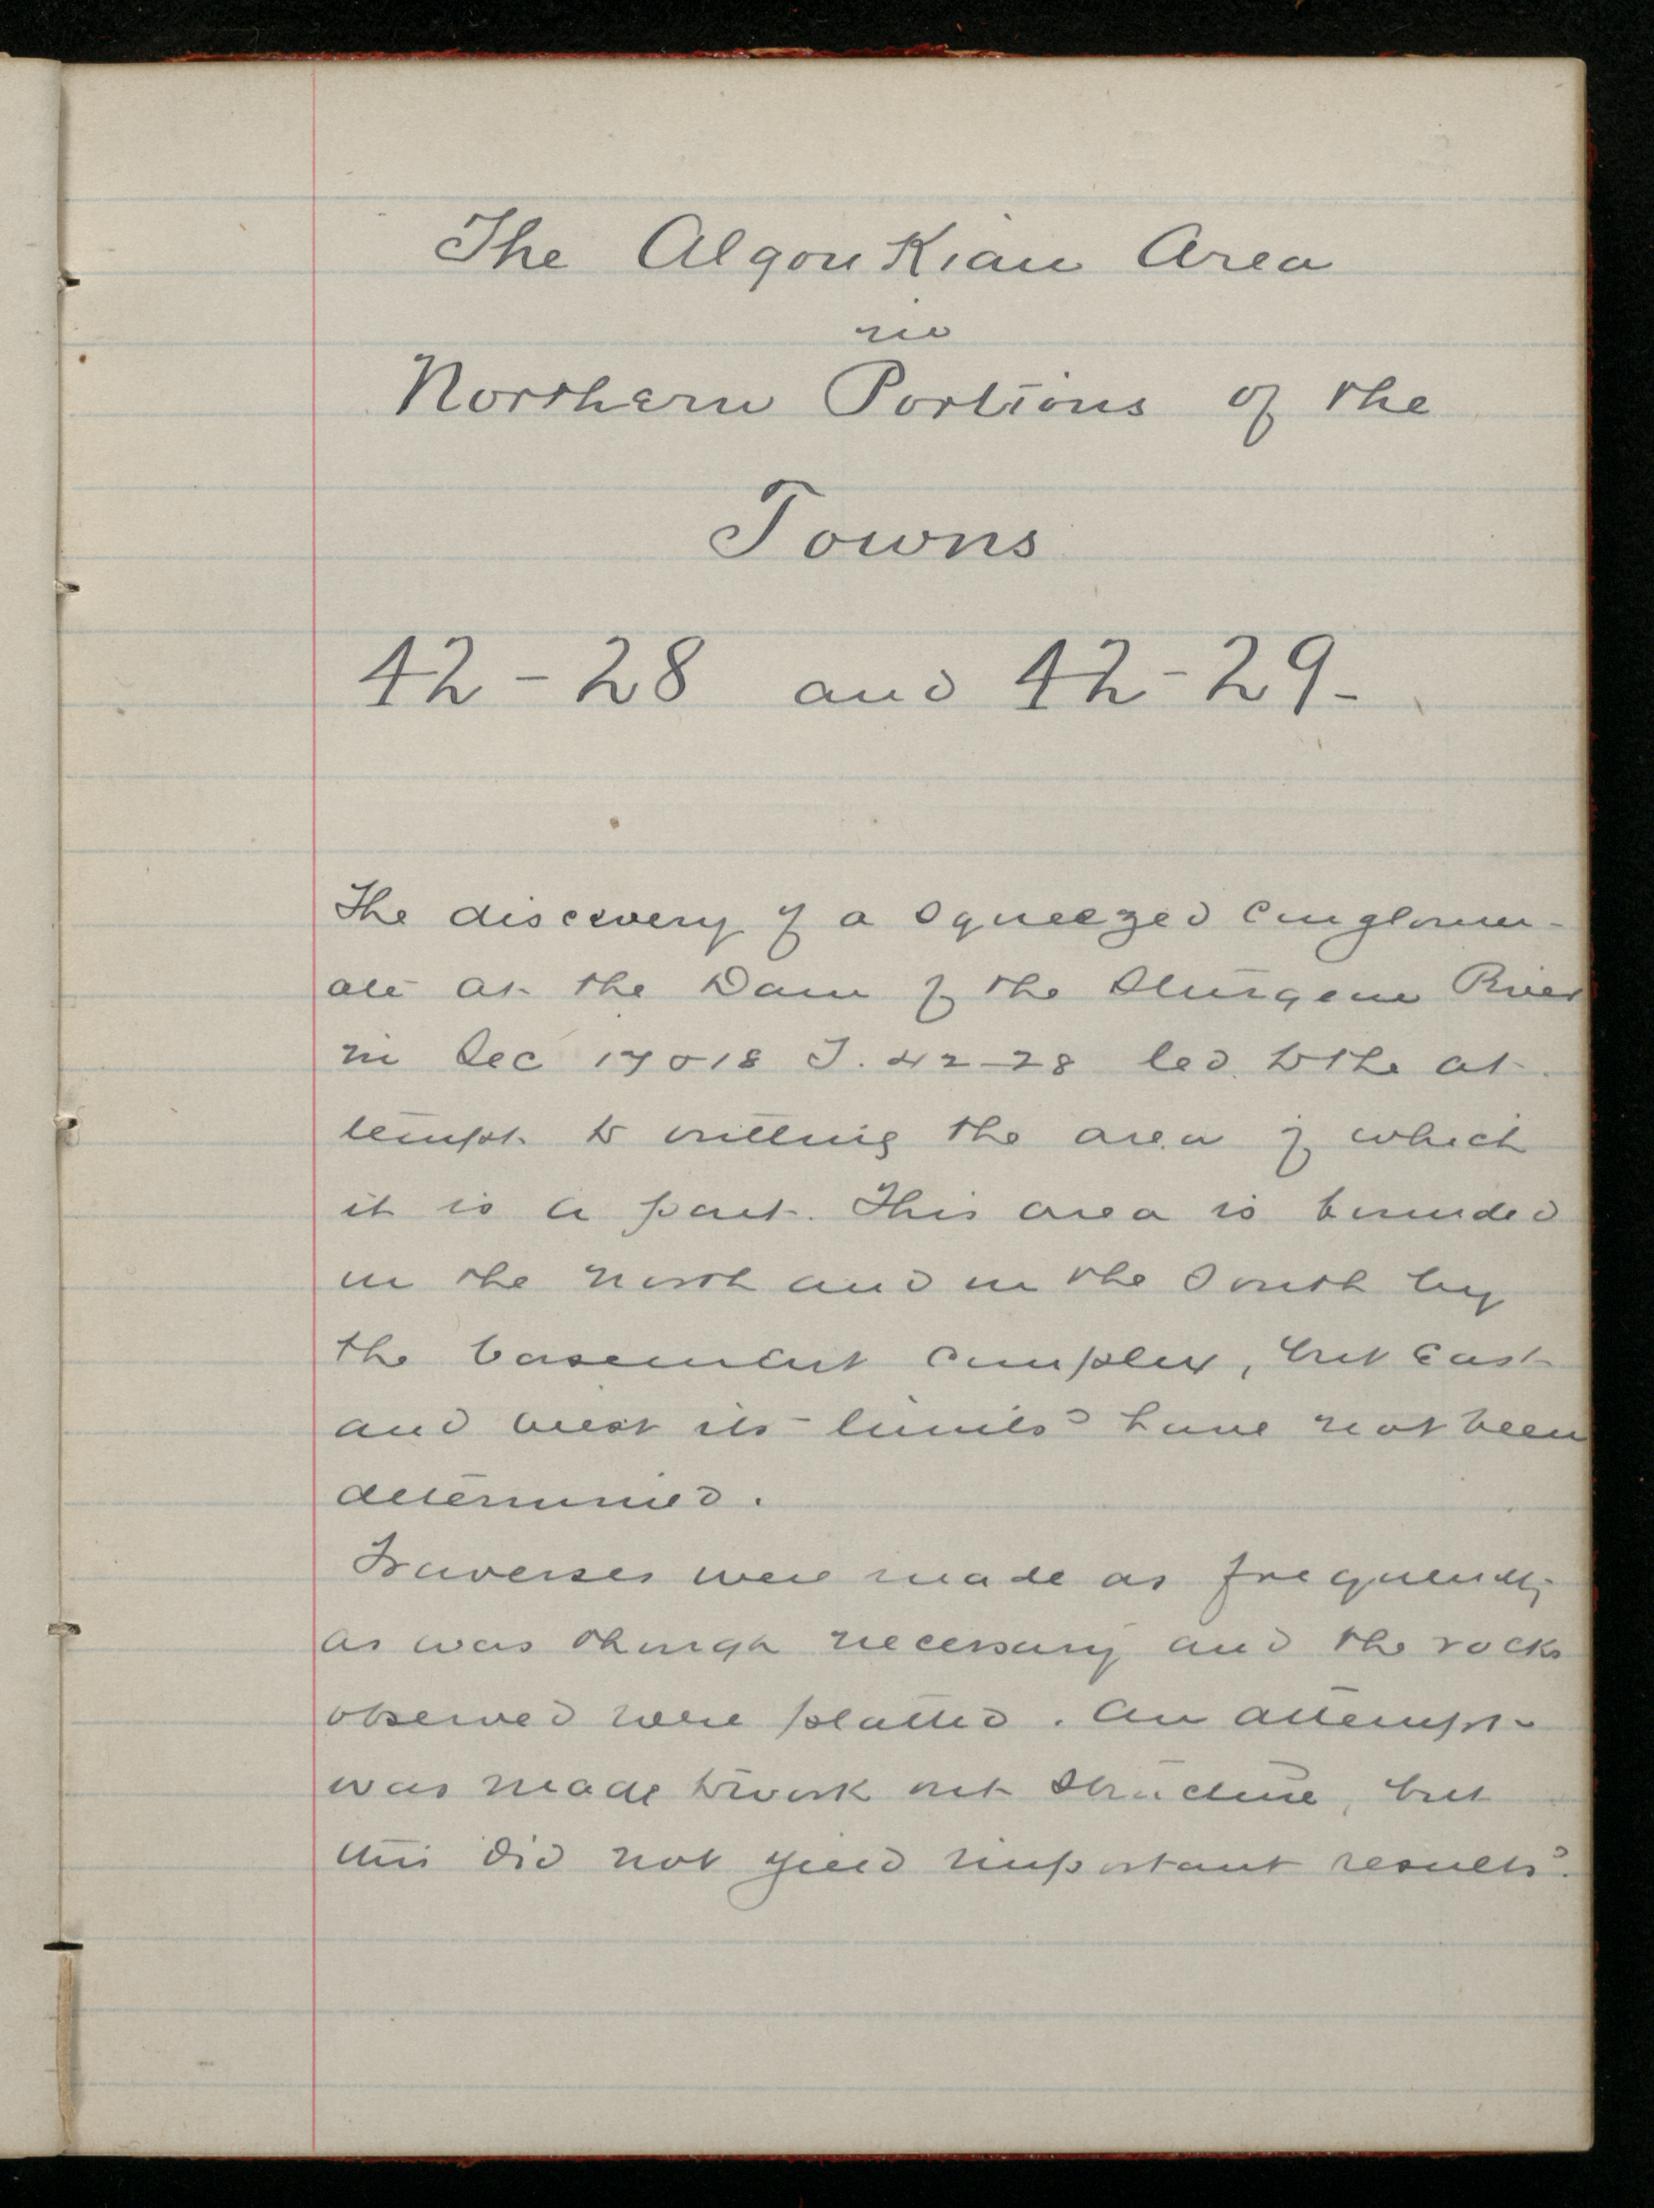 The Algonkian Area
in
Northern Portions of the
Towns
42-28 and 42-29-
The discovery of a squeezed conglomer-
ate at the Dam of the Sturgeon River
in Sec 17 & 18 T. 42-28 led to the at-
tempt to outline the area of which
it is a part. This area is bounded
on the north and on the South by
the basement complex, but East
and west its limits have not been
determined.
Traverses were made as frequently
as was though necessary and the rocks
observed were platted. An attempt
was made to work out structure, but
this did not yield important results.